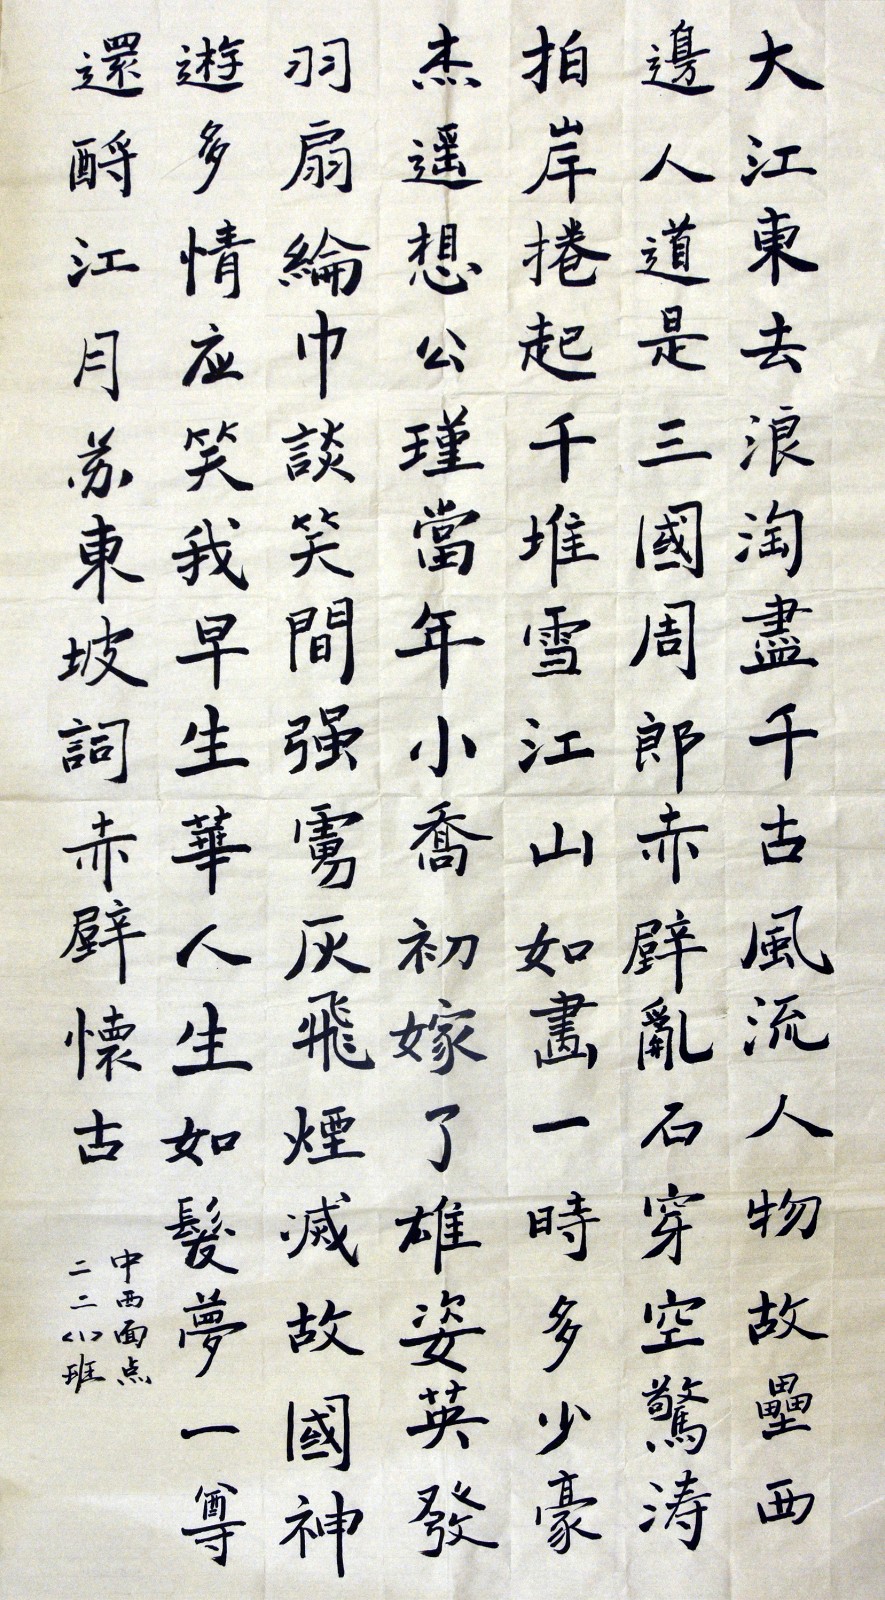 大江東去浪淘盡千古風流人物故壘西
邊人道是三國周郎赤壁亂石穿空驚涛
拍岸捲起千堆雪江山如畫一時多少豪
杰遥想公瑾當年小喬初嫁了雄姿英發
羽扇綸巾談笑間强虜灰飛煙滅故國神
遊多情应笑我早生華人生如髮夢一尊
還酹江月苏東坡詞赤壁懷古
中西面点
二二(1)班